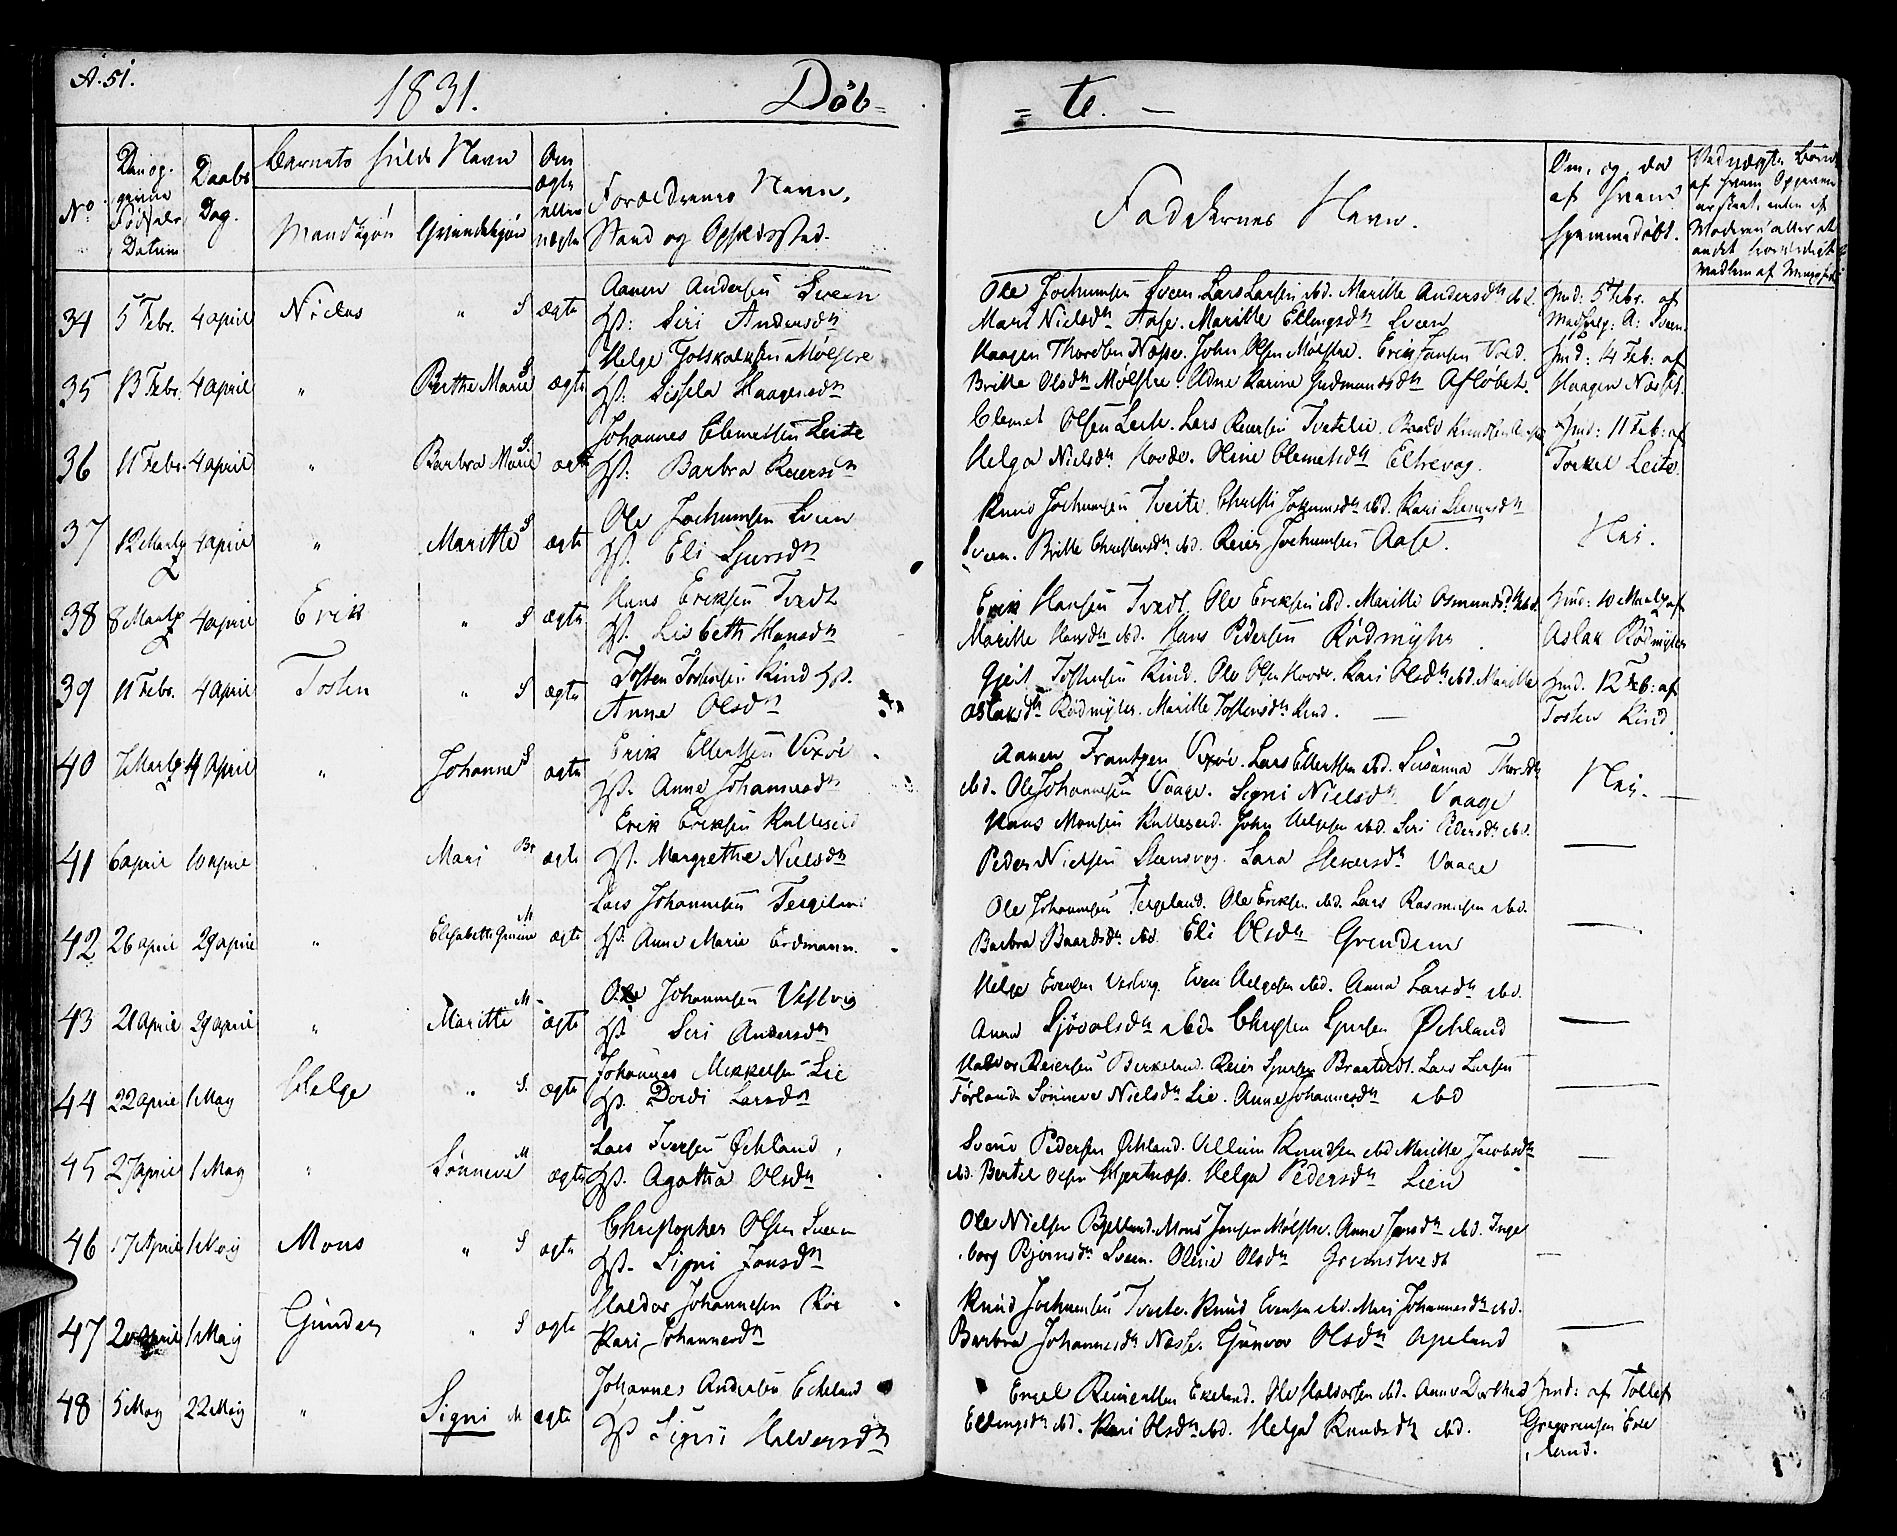 A. 51.
1831.
Døb=
= te. —
No
Dan og
Fødsels
Datum
Daabs
Dag.
Barnets fulde Navn
Mandkjøn
Qvindekjøn
Om
ægte
eller
uægte
Foræld­renes Navn,
Stand og Opholdssted.
Faddernes Navn.
Om, og, da
af hvem
hjemmedøbt.
34 5 Febr. 4 april Niclas " S ægte
Aanen Andersen Sveen
Hst: Siri Andersdtr
Ole Jochumsen Sveen. Lars Larsen ibd. Maritte Andersdtr ibd.
Mari Nielsdtr Aase. Maritte Ellingsdtr Sveen
Hmd: 5 Febr. af
A: Sveen.
35 13 Febr. 4 april " Berthe Marie S ægte
Helge Torkalsen Mølstre
Hst: Sissela Haagensdtr
Haagen Thordsen Næsse. John Olsen Mølstre. Erik Jansen
Britte Olsdtr Mølstre. Karine Gudmundsdtr
Hmd: 14 Feb: af
Haagen Næsse.
36 11 Febr. 4 april " Barbra Marie S ægte
Johannes Clemetsen Leite
Hst: Barbra Reiersdtr
Clemet Olsen Leite. Lars Reiersen Tveitelie. Baard Knudsen
Helga Nielsdtr Hovde. Oline Clemetsdtr Eltrevog.
Hmd: 11 Feb: af
Torkel Leite.
37 12 Martz 4 april " Maritte S ægte
Ole Jochumsen Sveen
Hst. Eli Sjursdtr
Knud Jochumsen Tveite. Christi Jochumsdtr ibd. Kari
Sveen. Britte Christensdtr ibd. Reier Jochumsen Aase.
Nei.
38 8 Martz 4 april Erik " S ægte
Hans Eriksen Tvedt
Hst. Lisbeth Hansdtr
Erik Hansen Tvedt. Ole Eriksen ibd. Maritte Asmundsdtr ibd.
Maritte Hansdtr ibd. Hans Pedersen Rødmyhr
Hmd: 10 Martz af
Aslak Rødmyhr
39 11 Febr. 4 april Tosten " S ægte
Tosten Tostensen Kind Hst.
Anne Olsdtr
Gjert Tostensen Kind. Ole Olsen Hovde. Kari Olsdtr ibd. Maritte
Aslaksdtr Rødmyhr. Maritte Tostensdtr Kind. —
Hmd. 12 Feb: af
Tosten Kind.
40 7 Martz 4 April " Johanne S ægte
Erik Ellertsen Vixøe
Hst. Anne Johannesdtr
Aanen Frantzen Vixøe. Lars Ellertsen ibd. Susanna Thorsdtr
ibd. Ole Johannesen Vaage. Signi Nielsdtr Vaage
Nei. —
41 6 april 10 april " Mari Br ægte
Erik Eriksen Kulleseid
Hst. Margrethe Nielsdtr
Hans Monsen Kulleseid. John Helgesen ibd. Siri Pedersdtr ibd.
Peder Nielsen Steensvog. Sara Vaage
—
42 26 april 29 april " Elisabeth M ægte
Lars Johannesen Tergeland
Hst. Anne Marie Erdmann.
Ole Johannesen Tergeland. Ole Eriksen ibd. Lars Rasmussen ibd.
Barbra Baardsdtr ibd. Eli Olsdtr Grindem
—
43 21 april 29 april " Maritte M. ægte
Ole Johannesen Vestvig
Hst Siri Andersdtr
Helge Evensen Vestvig. Even Helgesen ibd. Anna Larsdtr ibd.
Anna ibd. Christen Sjursen Økland
—
44 22 april 1 May Helge " S. ægte
Johannes Mikkelsen Lie
Hst. Dordi Larsdtr
Halvor Reiersen Birkeland. Reier Sjursen Braatvedt. Lars Larsen
Førland. Sønneve Nielsdtr Lie. Anne Johannesdtr ibd
—
45 27 april 1 May " Sønneve M ægte
Lars Iversen Økland
Hst. Agatha Olsdtr
Svend Pedersen Økland. Villum Knudsen ibd Maritte Jacobsdtr
ibd. Bertel Olsen Hjertnæss. Helga Pedersdtr Lien
—
46 17 April 1 May Mons " S ægte
Christopher Olsen Sveen
Hst. Signi Jonsdtr
Ole Nielsen Bjelland. Mons Jansen Mølstre. Anne Jonsdtr ibd. Inge
borg Bjørnsdtr Sveen. Olene Olsdtr Grimstvedt
—
47 20 april 1 May Gunder " S ægte
Haldor Johannesen Røe
Kari Johannesdtr
Knud Jochumsen Tveite. Knud Evensen ibd. Mari Johannesdtr ibd.
Barbra Johannesdtr Næsse. Gunvor Olsdtr Apeland
—
48 5 May 22 May " Signi M ægte
Johannes Andersen Ekeland
Hst Signi Halvorsdtr
Engel Reinertsen Ekeland. Ole Haldorsen ibd. Anne Dorthea
Ellingsdtr ibd. Kari Olsdtr ibd. Helga Knudsdtr ibd.
Hmd: af Tollef
Gregoriusen Eke
land.